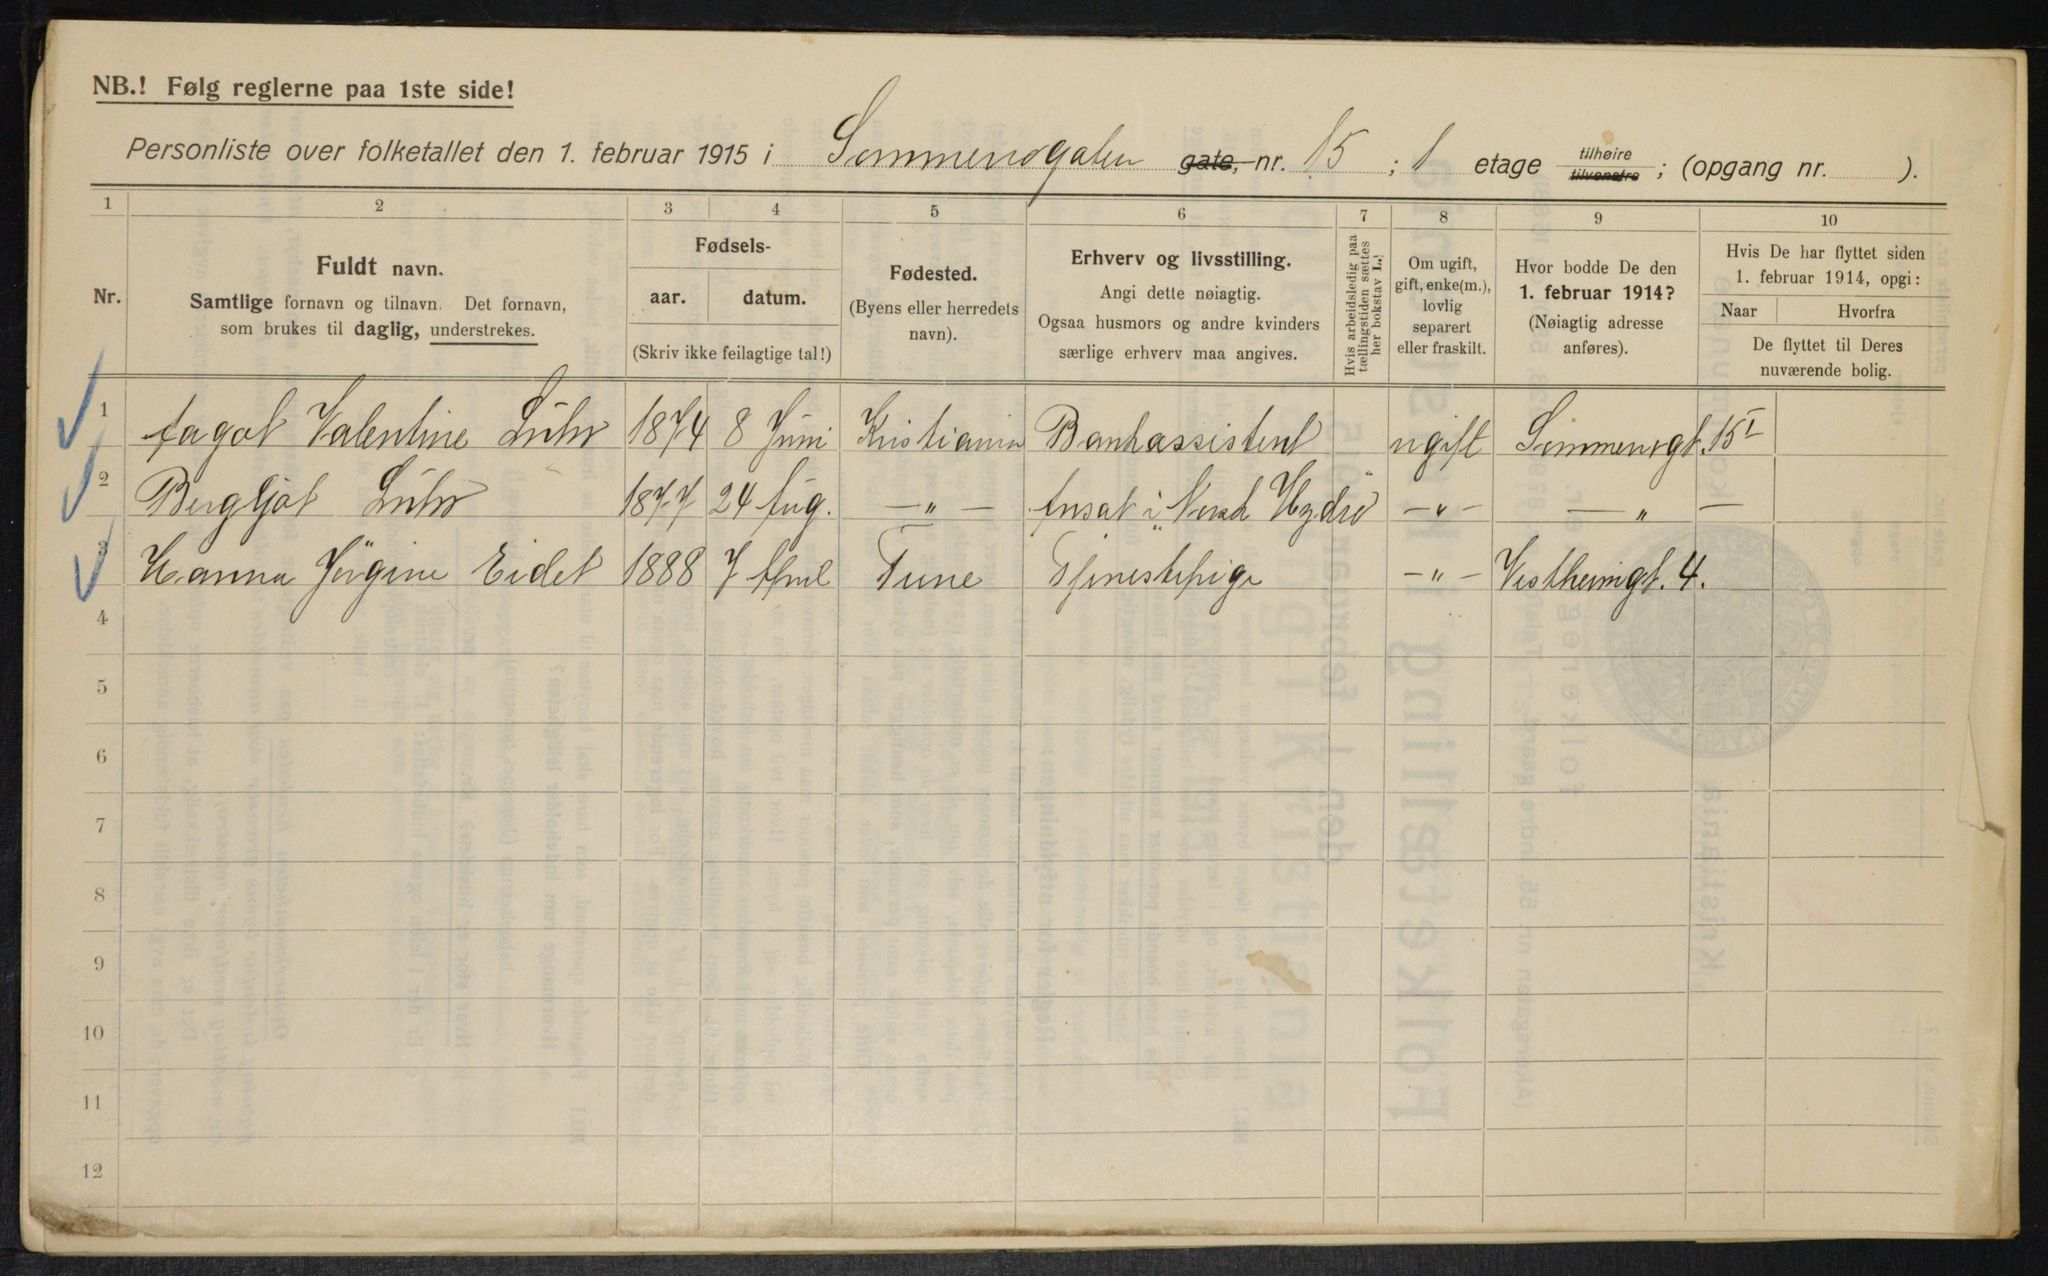 NB.! Følg reglerne paa 1ste side!
Personliste over folketallet den 1. februar 1915 i Sommerrogaten gate, nr. 15 ; 1 etage tilhøire tilvenstre ; (opgang nr. ).
1 2 3 4 5 6 7 8 9 10
Nr.
Fuldt navn.
Samtlige fornavn og tilnavn. Det fornavn,
som brukes til daglig, understrekes.
Fødsels-
aar. datum.
(Skriv ikke feilagtige tal!)
Fødested.
(Byens eller herredets
navn).
Erhverv og livsstilling.
Angi dette nøiagtig.
Ogsaa husmors og andre kvinders
særlige erhverv maa angives.
Hvis arbeidsledig paa
tællingstiden sættes
her bokstav L.
Om ugift,
gift, enke(m.),
lovlig
separert
eller fraskilt.
Hvor bodde De den
1. februar 1914?
(Nøiagtig adresse
anføres).
Hvis De har flyttet siden
1. februar 1914, opgi:
Naar Hvorfra
De flyttet til Deres
nuværende bolig.
1 Aagot Valentine Lühr 1874 8 Juni Kristiania Bankassistent ugift Sommerrogt. 15 I
2 Bergljot Lühr 1877 24 Aug. — „ — Ansat i Norsk Hydro — „ — — „ —
3 Hanna Jörgine Eidet 1888 7 April Tune Tjenestepige — „ — Vestheimgt. 4.
4
5
6
7
8
9
10
11
12